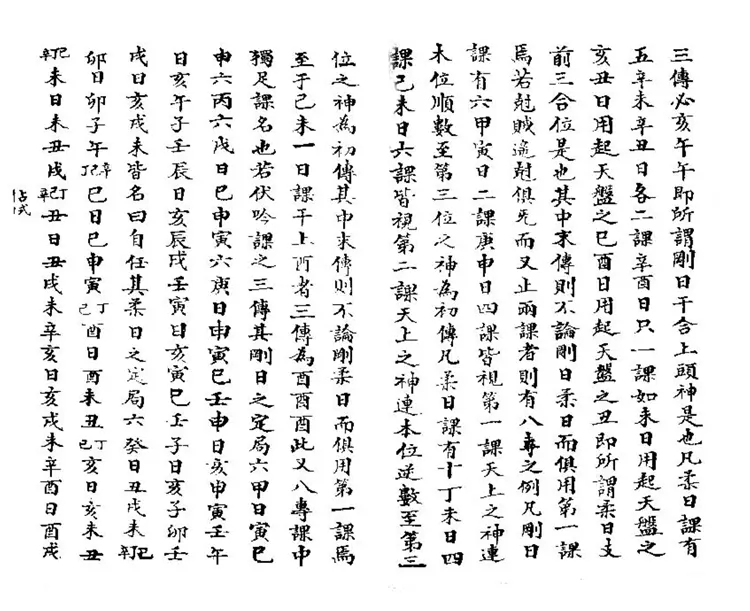 三傳必亥午午即所謂剛日干合上頭神是也凡柔日課有
五辛未辛丑日各二課辛酉日只一課如未日用起天盤之
亥丑日用起天盤之巳酉日用起天盤之丑即所謂柔日支
前三合位是也其中末傳則不論剛日柔日而俱用第一課
焉若尅賊遙尅俱无而又止兩課者則有八專之例凡剛日
課有六甲寅日二課庚申日四課皆視第一課天上之神連
木位順數至第三位之神為初傳凡柔日課有十丁未日四
課己未日六課皆視第二課天上之神連本位逆數至第三
位之神為初傳其中末傳則不論剛柔日而俱用第一課焉
至于己未一日課干上酉者三傳為酉酉酉此又八專課中
獨足課名也若伏吟課之三傳其剛日之定局六甲日寅巳
申六丙六戊日巳申寅六庚日申寅巳壬申日亥申寅壬午
日亥午子壬辰日亥辰戌壬寅日亥寅巳壬子日亥子卯壬
戌日亥戌未皆名曰自任其柔日之定局六癸日丑戌未己辛
卯日卯子午辛丁己巳日巳申寅丁己酉日酉未丑丁己亥日亥未丑
己辛未日未丑戌丁辛丑日丑戌未辛亥日亥戌未辛酉日酉戌
占式